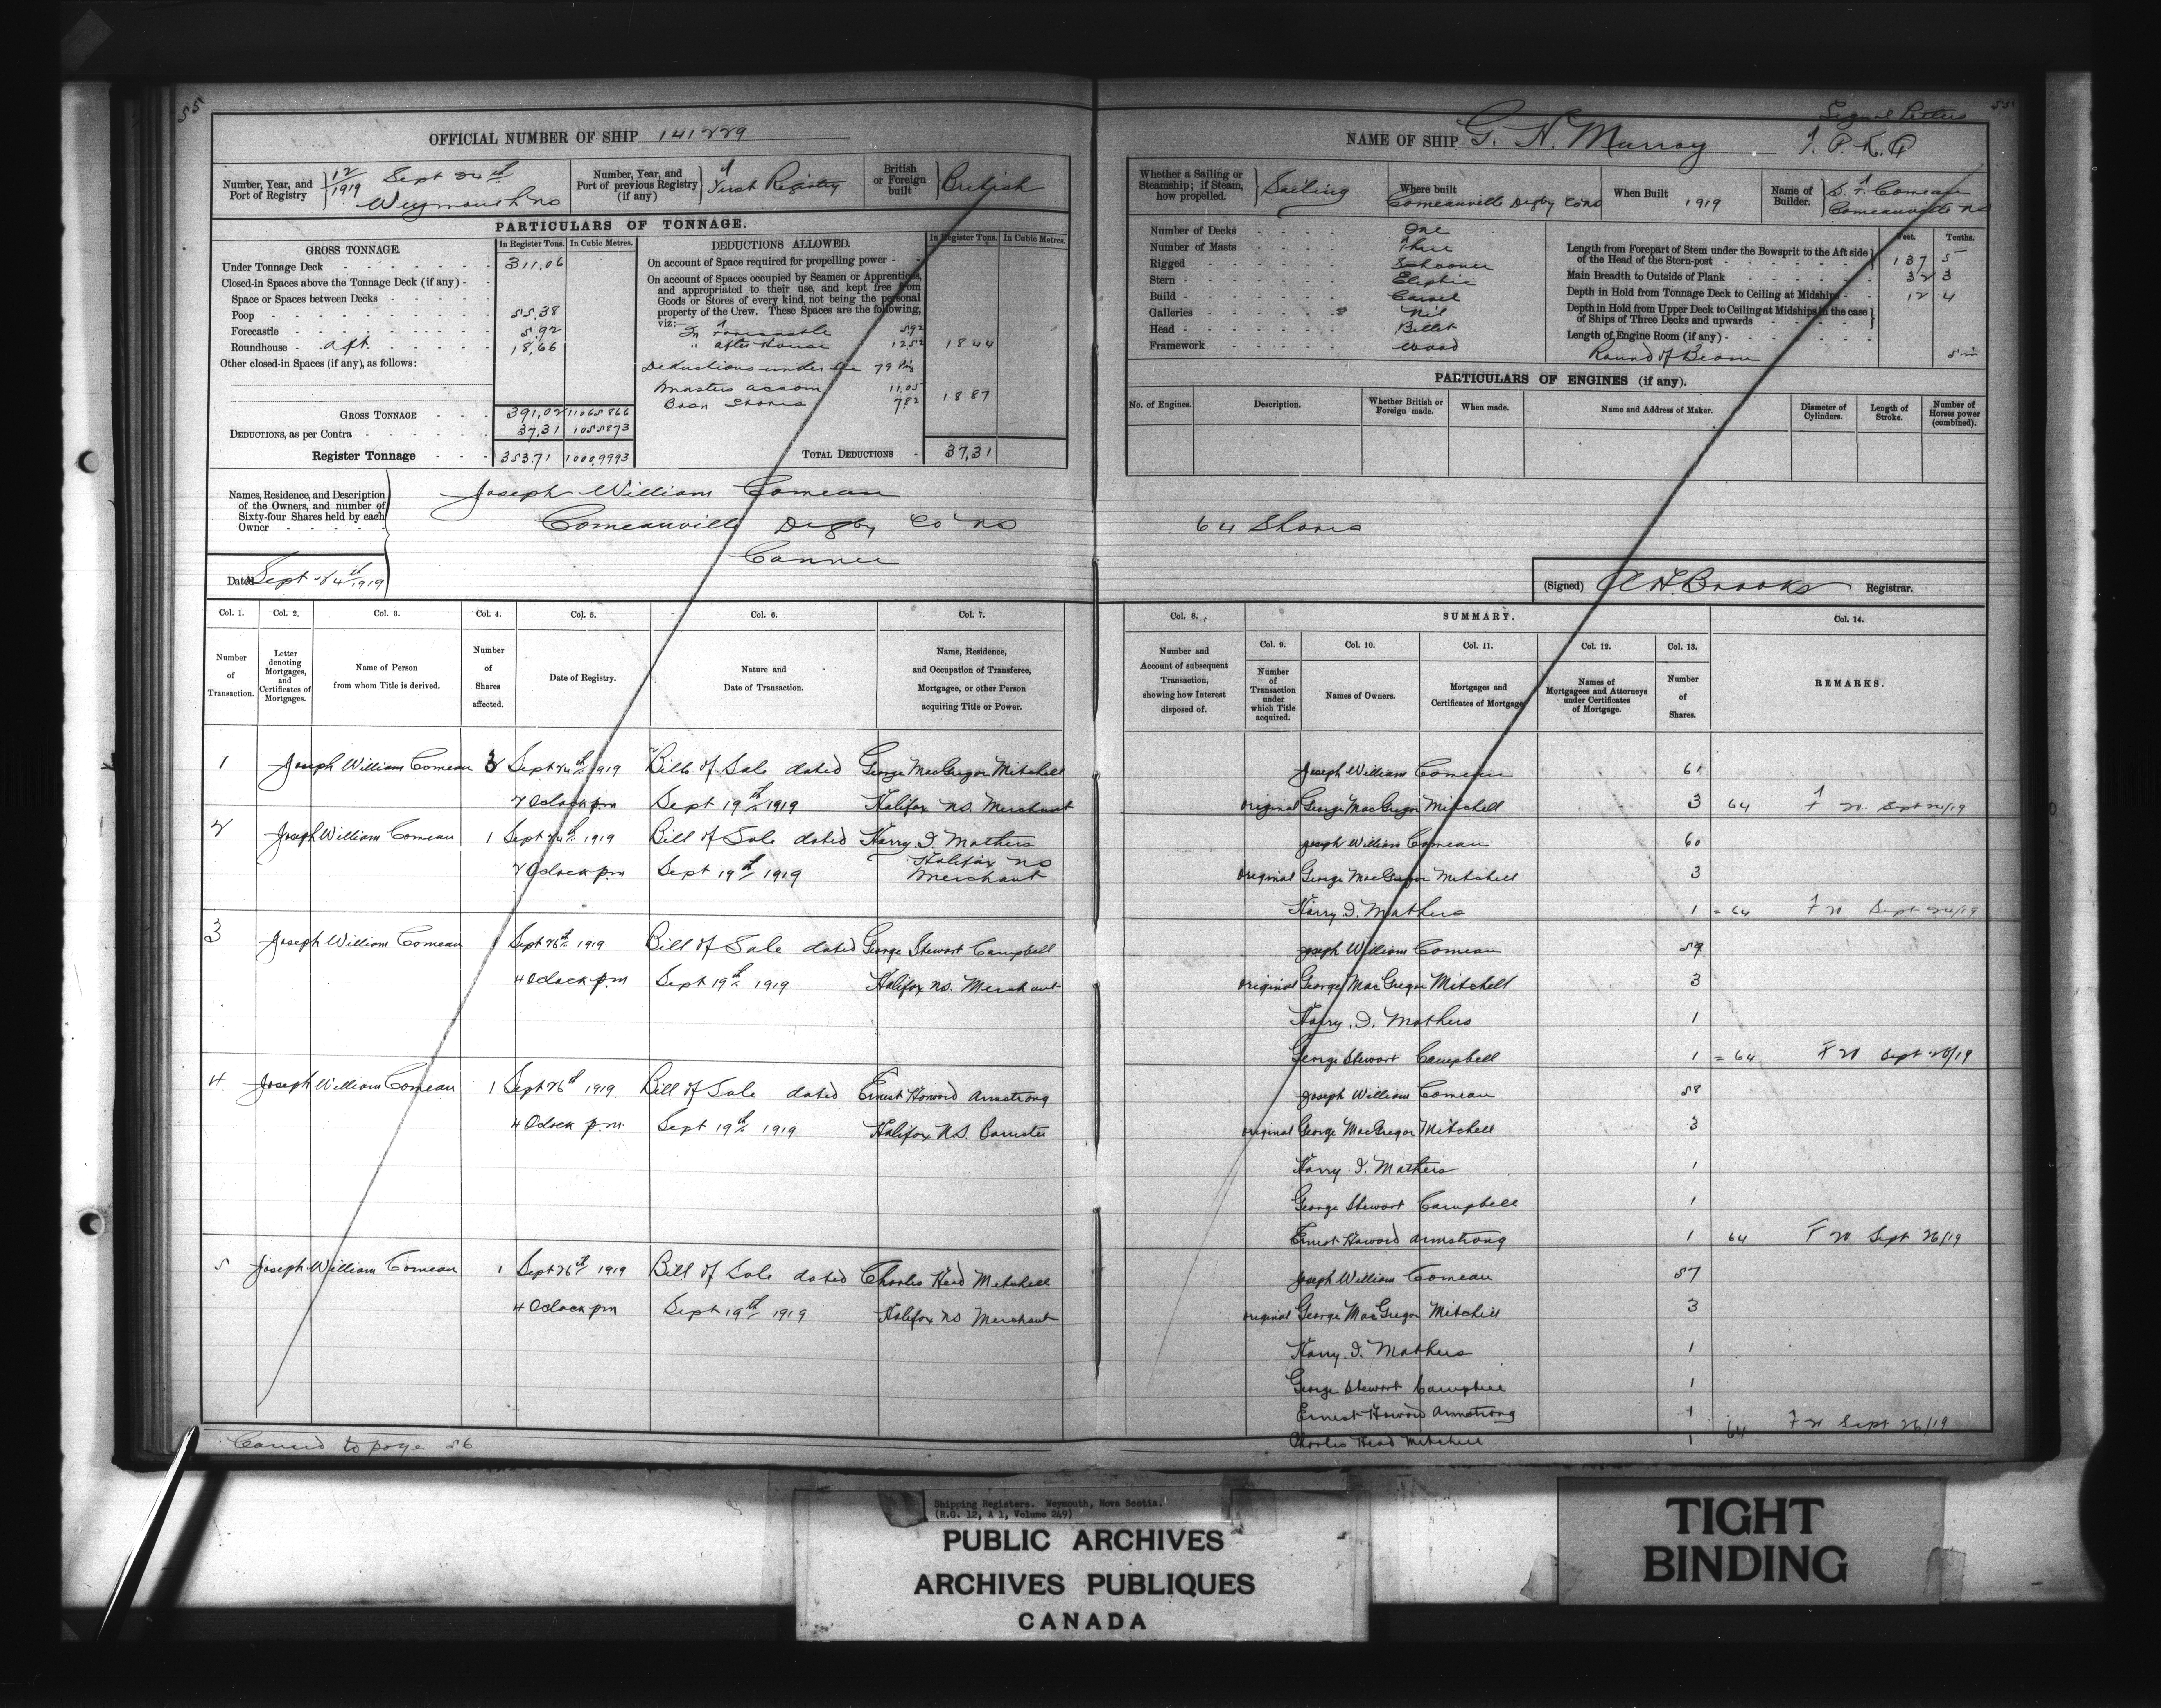 55
OFFICIAL NUMBER OF SHIP 141229
Number, Year, and Port of Registry 12/1919 Sept 24th Weymouth NS
Number, Year, and Port of previous Registry (if any) First Registry
British or Foreign built British
PARTICULARS OF TONNAGE.
GROSS TONNAGE. In Register Tons. In Cubic Metres.
Under Tonnage Deck 311.06
Closed-in Spaces above the Tonnage Deck (if any)
Space or Spaces between Decks
Poop 55.38
Forecastle 5.92
Roundhouse aft. 18.66
Other closed-in Spaces (if any), as follows:
GROSS TONNAGE 391.02 1106.5866
DEDUCTIONS, as per Contra 37.31 105.5873
Register Tonnage 353.71 1000.9993
DEDUCTIONS ALLOWED. In Register Tons. In Cubic Metres.
On account of Space required for propelling power
On account of Spaces occupied by Seamen or Apprentices, and appropriated to their use, and kept free from Goods or Stores of every kind, not being the personal property of the Crew. These Spaces are the following, viz:—
In Forecastle 5.92
" after House 12.52 18.44
Deductions under Sec 79
Masters accom 11.05
Bosn Stores 7.82 18.87
TOTAL DEDUCTIONS 37.31
Names, Residence, and Description of the Owners, and number of Sixty-four Shares held by each Owner
Joseph William Comeau
Comeauville Digby Co NS
Dated Sept 24th 1919
Col. 1. Col. 2. Col. 3. Col. 4. Col. 5. Col. 6. Col. 7.
Number of Transaction.
Letter denoting Mortgages, and Certificates of Mortgages.
Name of Person from whom Title is derived.
Number of Shares affected.
Date of Registry.
Nature and Date of Transaction.
Name, Residence, and Occupation of Transferee, Mortgagee, or other Person acquiring Title or Power.
1 Joseph William Comeau 3 Sept 24th 1919 Bill of Sale dated George MacGregor Mitchell
2 Oclock pm Sept 19th 1919 Halifax NS. Merchant
2 Joseph William Comeau 1 Sept 24th 1919 Bill of Sale dated Harry I. Mathers
2 Oclock pm Sept 19th 1919 Halifax NS
Merchant
3 Joseph William Comeau 1 Sept 26th 1919 Bill of Sale dated George Stewart Campbell
4 Oclock pm Sept 19th 1919 Halifax NS. Merchant
4 Joseph William Comeau 1 Sept 26th 1919 Bill of Sale dated Ernest Howard Armstrong
4 Oclock p.m. Sept 19th 1919 Halifax N.S. Barrister
5 Joseph William Comeau 1 Sept 26th 1919 Bill of Sale dated Charles Head Mitchell
4 Oclock pm Sept 19th 1919 Halifax NS Merchant
to page 56
55
NAME OF SHIP G. H. Murray
Signal Letters
T. P. K. Q
Whether a Sailing or Steamship; if Steam, how propelled. Sailing
Where built Comeauville Digby Co NS
When Built 1919
Name of Builder. Comeau Comeauville NS
Number of Decks One
Number of Masts Three
Rigged Schooner
Stern Eliptic
Build Carvel
Galleries Nil
Head Billet
Framework Wood
Feet. Tenths.
Length from Forepart of Stem under the Bowsprit to the Aft side of the Head of the Stern-post 137 5
Main Breadth to Outside of Plank 32 3
Depth in Hold from Tonnage Deck to Ceiling at Midships 12 4
Depth in Hold from Upper Deck to Ceiling at Midships in the case of Ships of Three Decks and upwards
Length of Engine Room (if any)
Round of Beam 5 in
PARTICULARS OF ENGINES (if any).
No. of Engines. Description. Whether British or Foreign made. When made. Name and Address of Maker. Diameter of Cylinders. Length of Stroke. Number of Horses power (combined).
64 Shares
(Signed) A H. Brooks Registrar.
Col. 8. SUMMARY. Col. 14.
Col. 9. Col. 10. Col. 11. Col. 12. Col. 13.
Number and Account of subsequent Transaction, showing how Interest disposed of.
Number of Transaction under which Title acquired.
Names of Owners.
Mortgages and Certificates of Mortgage.
Names of Mortgagees and Attorneys under Certificates of Mortgage.
Number of Shares.
REMARKS.
Joseph William Comeau 61
original George MacGregor Mitchell 3 64 F 20 Sept 24/19
Joseph William Comeau 60
original George MacGregor Mitchell 3
Harry I. Mathers 1 = 64 F 20 Sept 24/19
Joseph William Comeau 59
original George MacGregor Mitchell 3
Harry. I. Mathers 1
George Stewart Campbell 1 = 64 F 20 Sept 26/19
Joseph William Comeau 58
original George MacGregor Mitchell 3
Harry. I. Mathers 1
George Stewart Campbell 1
Ernest Howard Armstrong 1 64 F 20 Sept 26/19
Joseph William Comeau 57
original George MacGregor Mitchell 3
Harry. I. Mathers 1
George Stewart Campbell 1
Ernest Howard Armstrong 1
Charles Head Mitchell 1 64 F 20 Sept 26/19
Shipping Registers. Weymouth, Nova Scotia.
(R.G. 12, A 1, Volume 249)
PUBLIC ARCHIVES
ARCHIVES PUBLIQUES
CANADA
TIGHT
BINDING